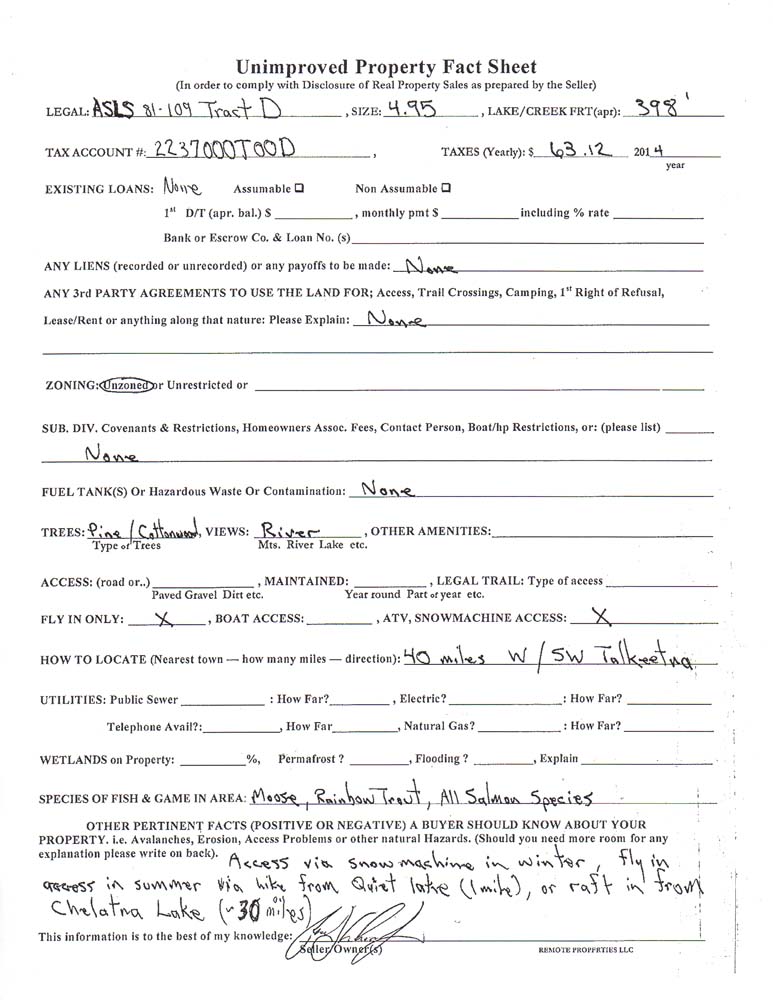 Unimproved Property Fact Sheet
(In order to comply with Disclosure of Real Property Sales as prepared by the Seller)
LEGAL: ASLS 81-109 Tract D , SIZE: 4.95 , LAKE/CREEK FRT(apr): 398'
TAX ACCOUNT #: 2237000T00D , TAXES (Yearly): $ 63.12 2014
year
EXISTING LOANS: None Assumable ☐ Non Assumable ☐
1st D/T (apr. bal.) $ , monthly pmt $ including % rate
Bank or Escrow Co. & Loan No. (s)
ANY LIENS (recorded or unrecorded) or any payoffs to be made: None
ANY 3rd PARTY AGREEMENTS TO USE THE LAND FOR; Access, Trail Crossings, Camping, 1st Right of Refusal,
Lease/Rent or anything along that nature: Please Explain: None
ZONING: Unzoned or Unrestricted or
SUB. DIV. Covenants & Restrictions, Homeowners Assoc. Fees, Contact Person, Boat/hp Restrictions, or: (please list)
None
FUEL TANK(S) Or Hazardous Waste Or Contamination: None
TREES: Pine / Cottonwood, VIEWS: River , OTHER AMENITIES:
Type of Trees Mts. River Lake etc.
ACCESS: (road or..) , MAINTAINED: , LEGAL TRAIL: Type of access
Paved Gravel Dirt etc. Year round Part of year etc.
FLY IN ONLY: X , BOAT ACCESS: , ATV, SNOWMACHINE ACCESS: X
HOW TO LOCATE (Nearest town — how many miles — direction): 40 miles W / SW Talkeetna
UTILITIES: Public Sewer : How Far? , Electric? : How Far?
Telephone Avail?: , How Far , Natural Gas? : How Far?
WETLANDS on Property: %, Permafrost ? , Flooding ? , Explain
SPECIES OF FISH & GAME IN AREA: Moose, Rainbow Trout, All Salmon Species
OTHER PERTINENT FACTS (POSITIVE OR NEGATIVE) A BUYER SHOULD KNOW ABOUT YOUR
PROPERTY. i.e. Avalanches, Erosion, Access Problems or other natural Hazards. (Should you need more room for any
explanation please write on back). Access via snowmachine in winter, fly in
access in summer via hike from Quiet lake (1 mile), or raft in from
Chelatna Lake (~30 miles)
This information is to the best of my knowledge:
Seller/Owner(s) REMOTE PROPERTIES LLC